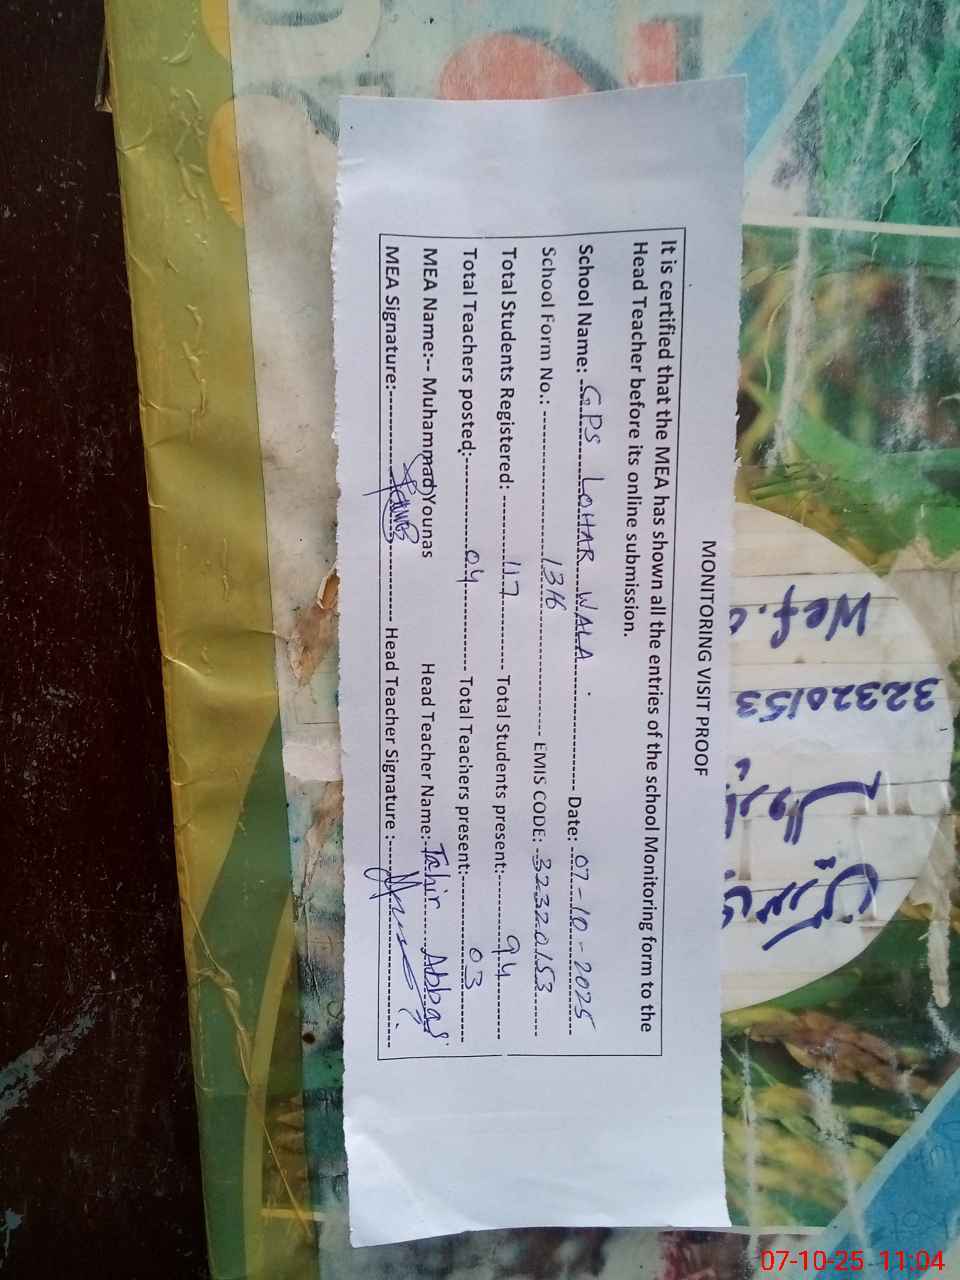 MONITORING VISIT PROOF
It is certified that the MEA has shown all the entries of the school Monitoring form to the
Head Teacher before its online submission.
School Name: GPS LOHAR WALA Date: 07-10-2025
School Form No.: 1316 EMIS CODE: 32320153
Total Students Registered: 117 Total Students present: 94
Total Teachers posted: 04 Total Teachers present: 03
MEA Name:-- Muhammad Younas Head Teacher Name: Tahir Abbas
MEA Signature: Head Teacher Signature :
32320153
Wef.
07-10-25 11:04